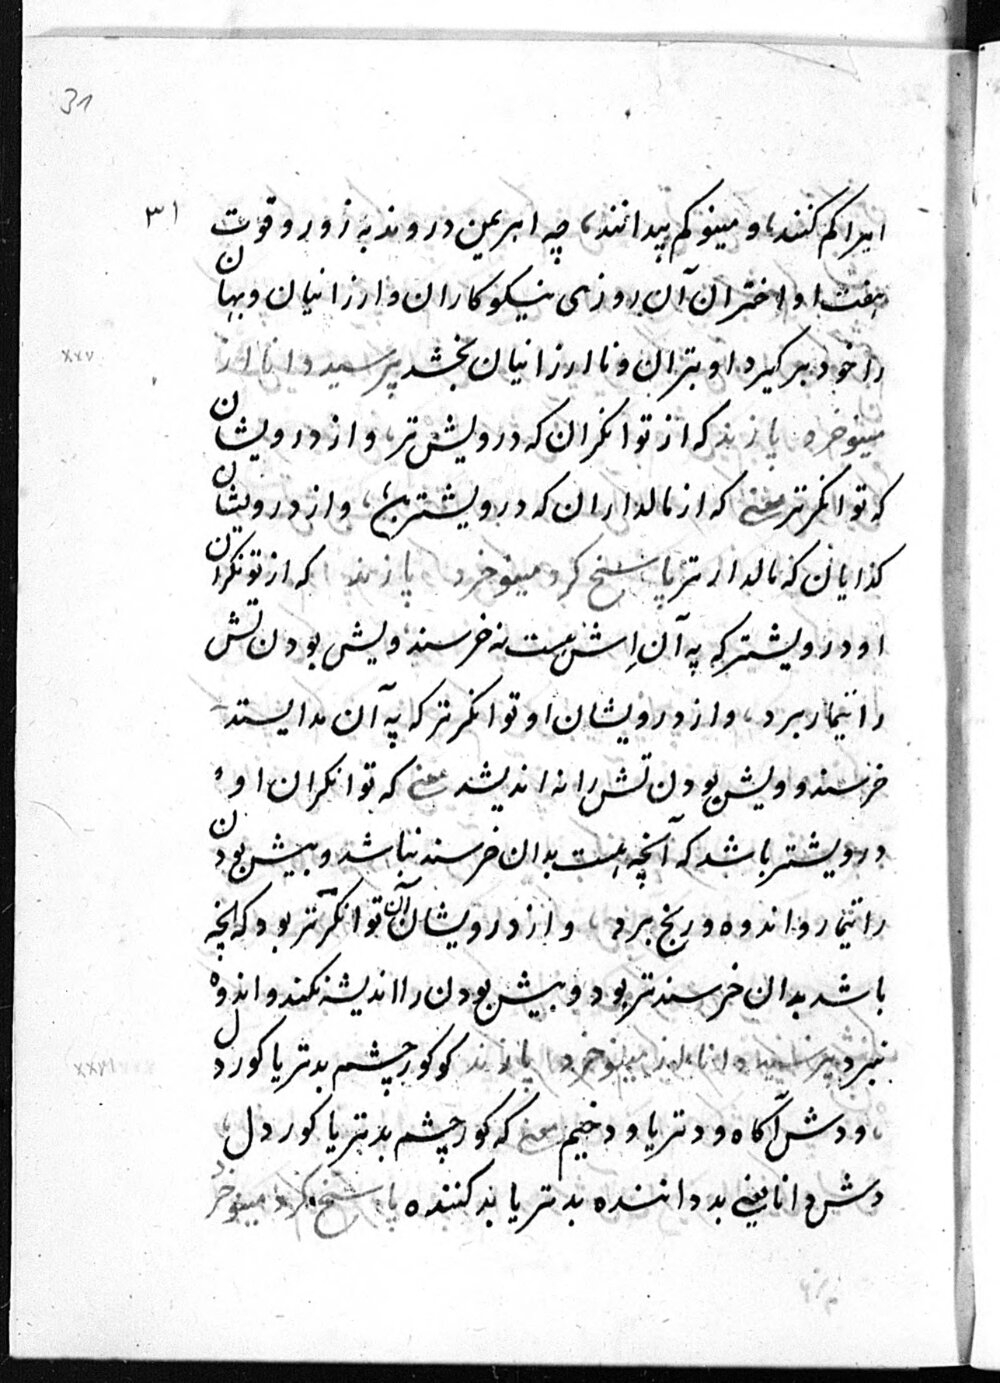 31
۳۱
ایرا کم کنند، و مینو کم پیدانند، چه اهریمن دروند به زور و قوت
هفت او اختران آن روزی نیکوکاران و ارزانیان و بهان
را خود برگیرد او بتران و نا ارزانیان بخشد پرسید دانا از
xxv
مینوخرد پازند که از توانگران که درویش تر، و از درویشان
که توانگرتر معنی که از مالداران که درویشتر، و از درویشان
کدایان که مالدارتر پاسخ کرد مینوخرد پازند که از تونگران
او درویشتر که په آن اش هست نه خرسند ویش بودن تش
را تیمار برد، و از درویشان او توانگرتر که په آن مدایستد
خرسند و ویش بودن تش را نه اندیشد معنی که توانگران او
درویشتر باشد که آنچه هست بدان خرسند نباشد و بیش بودن
را تیمار و اندوه و رنج برد، و از درویشان آن توانگرتر بود که آنچه
باشد بدان خرسندتر بود و بیش بودن را اندیشه نکند و اندوه
نبرد پرسید دانا از مینوخرد پازند کو کور چشم بدتر یا کور دل
xxvi
، و دش آگاه ودتر یا ودخیم معنی که کور چشم بدتر یا کور دل
دش دانا یعنی بد داننده بدتر یا بد کننده پاسخ کرد مینوخرد